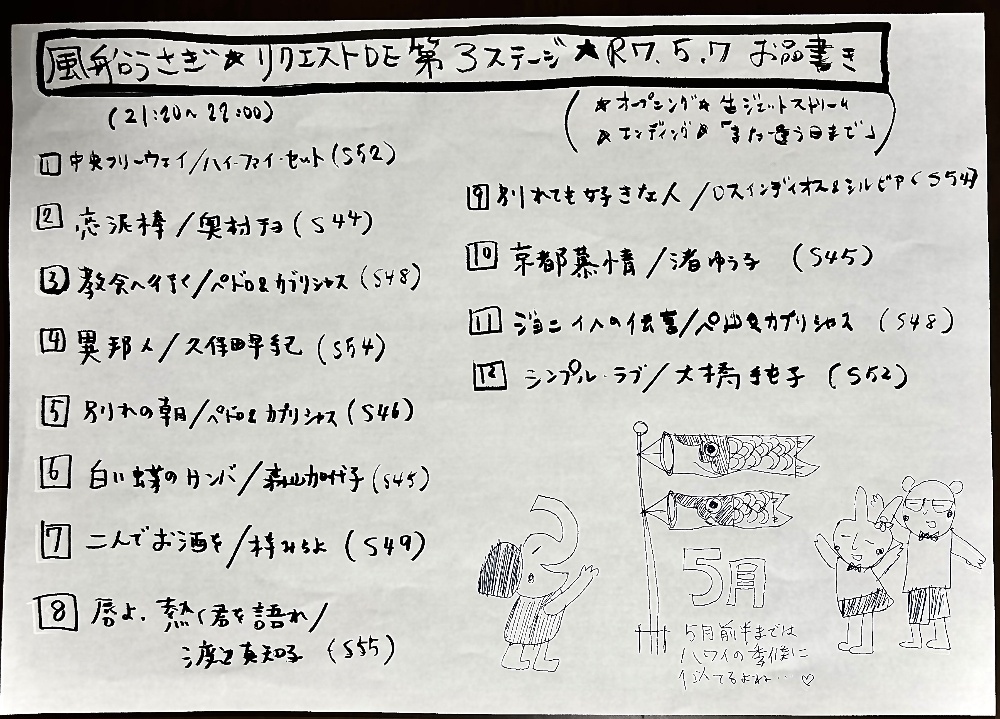 風船うさぎ★リクエストDE第3ステージ★R7.5.7 お品書き
(21:20~22:00)
(★オープニング★生ジェットストリーム
★エンディング★「また逢う日まで」)
1 中央フリーウェイ/ハイ・ファイ・セット(S52)
2 恋泥棒/奥村チヨ(S44)
3 教会へ行く/ペドロ&カプリシャス(S48)
4 異邦人/久保田早紀(S54)
5 別れの朝/ペドロ&カプリシャス(S46)
6 白い蝶のサンバ/森山加代子(S45)
7 二人でお酒を/梓みちよ(S49)
8 唇よ、熱く君を語れ/
渡辺真知子(S55)
9 別れても好きな人/ロスインディオス&シルビア(S54)
10 京都慕情/渚ゆう子(S45)
11 ジョニィへの伝言/ペドロ&カプリシャス(S48)
12 シンプル・ラブ/大橋純子(S52)
5月
5月前半までは
ハワイの季候に
似てるよね…♡